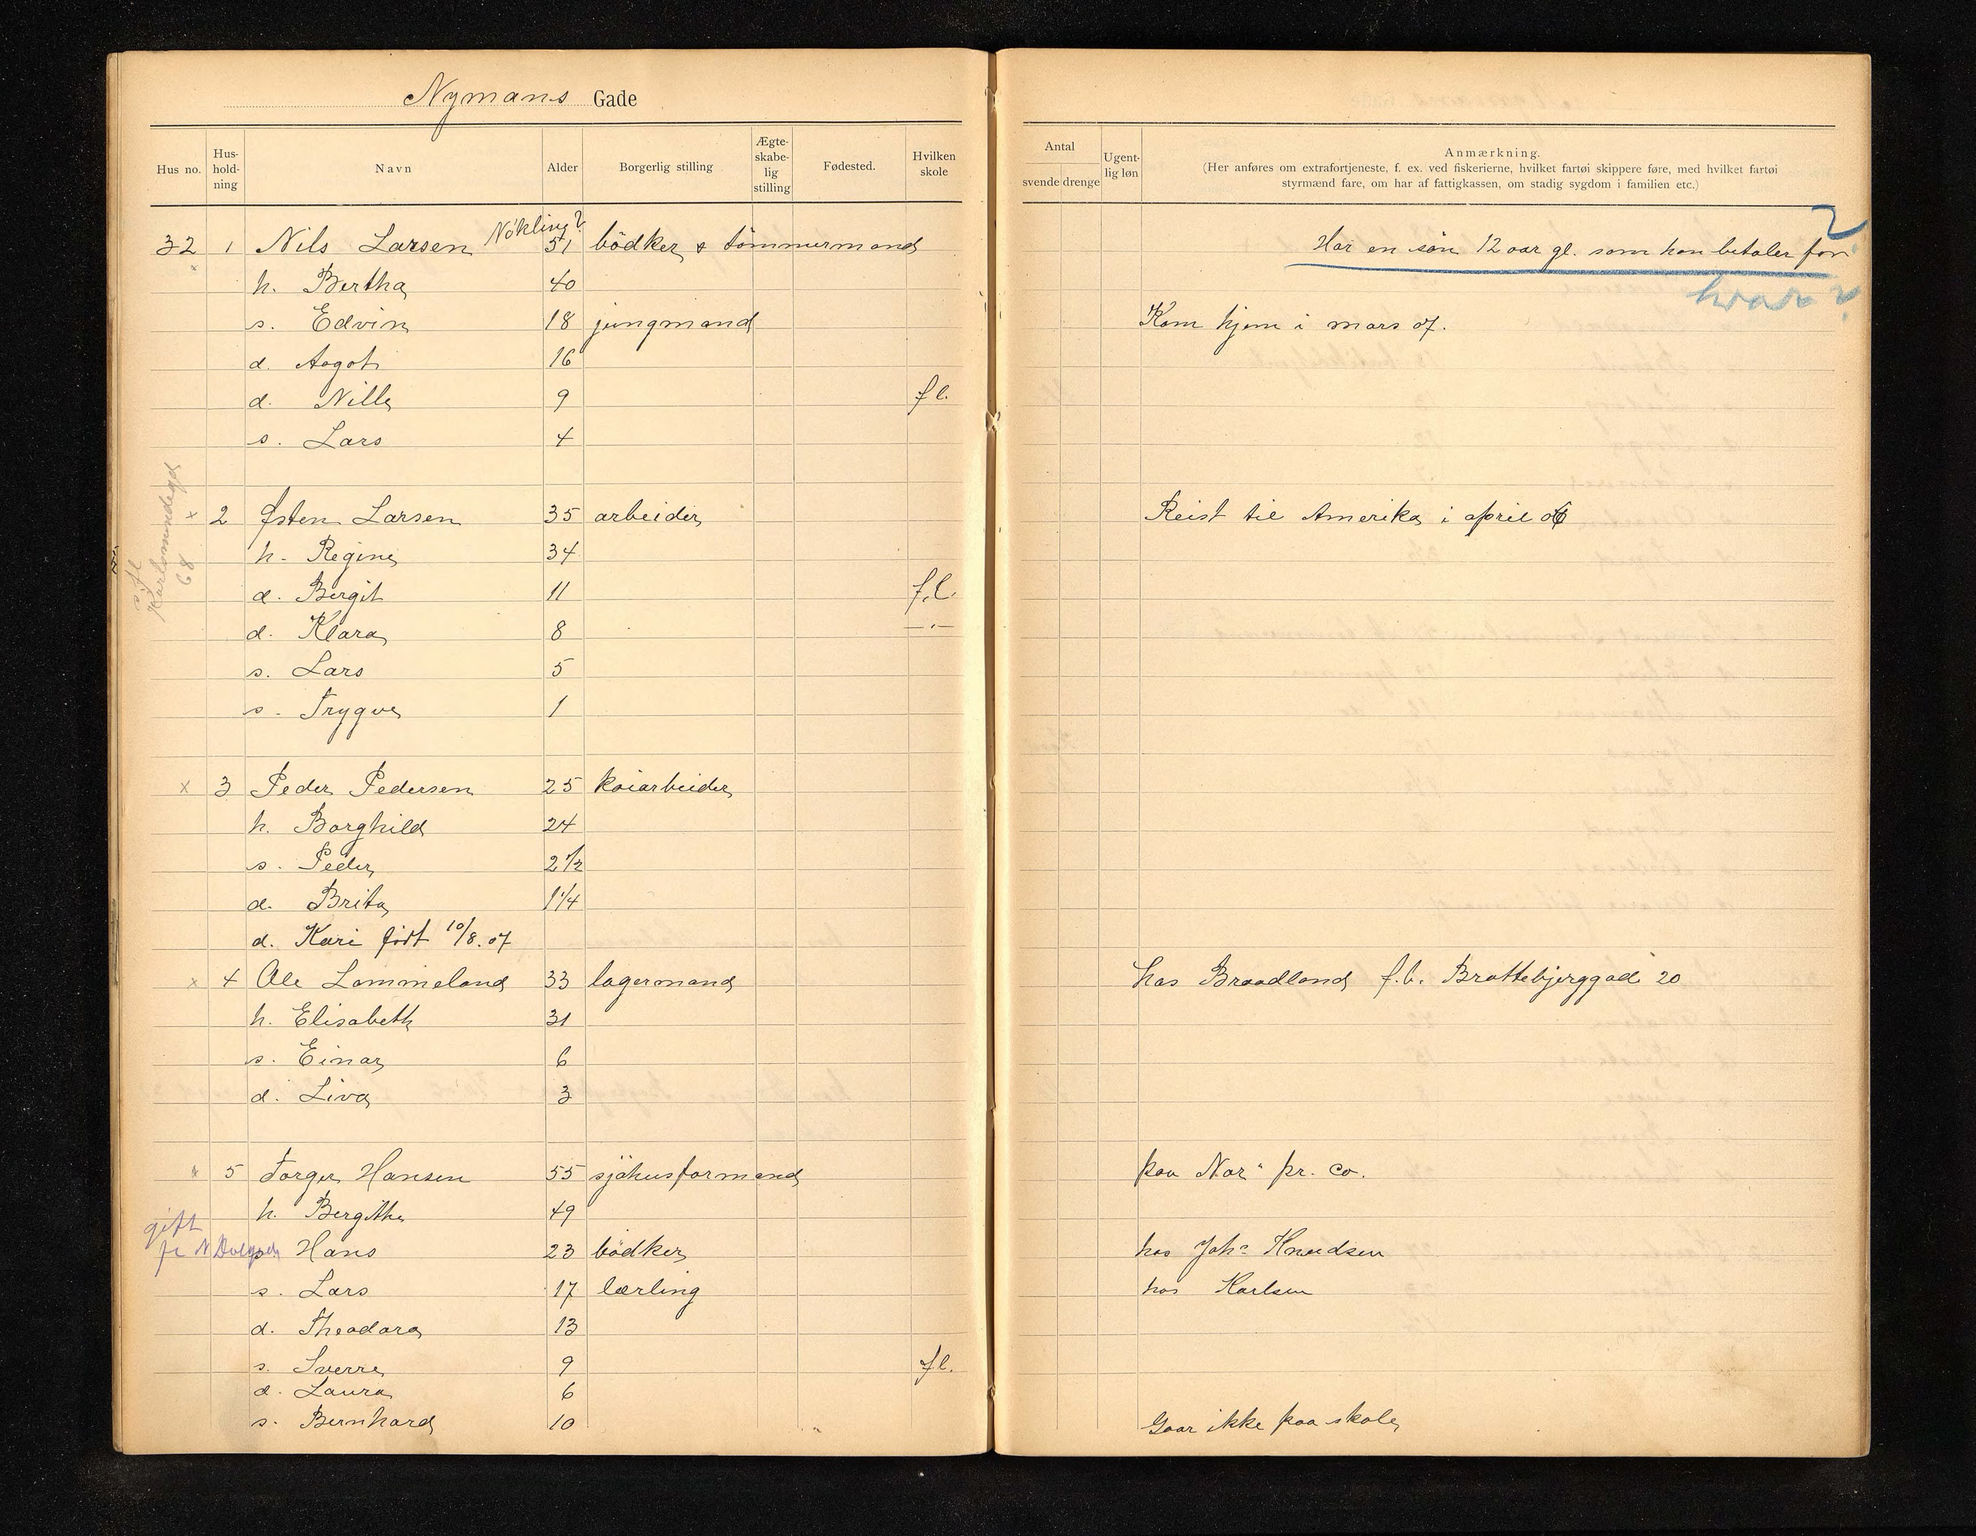 Nymans Gade
Hus no. Hus-hold-ning Navn Alder Borgerlig stilling Ægte-skabe-lig stilling Fødested. Hvilken skole
Antal svende drenge Ugent-lig løn Anmærkning.
(Her anføres om extrafortjeneste, f. ex. ved fiskerierne, hvilket fartøi skippere føre, med hvilket fartøi
styrmænd fare, om har af fattigkassen, om stadig sygdom i familien etc.)
32 1 Nils Larsen Nökling? 51 bödker & tömmermand Har en sön 12 aar gl. som han betaler for ?
h. Bertha 40 hvor?
s. Edvin 18 jungmand Kom hjem i mars 07.
d. Aagot 16
d. Nille 9 f l.
s. Lars 4
2 Østen Larsen 35 arbeider Reist til Amerika i april 06
h. Regine 34
68
d. Bergit 11 f.l.
d. Klara 8 —"—
s. Lars 5
s. Trygve 1
x 3 Peder Pedersen 25 kaiarbeider
h. Borghild 24
s. Peder 2 1/2
d. Brita 1 1/4
d. Kari født 10/8. 07
x 4 Ole Lammeland 33 lagermand hos Braadland f.b. Brattebjerggad 20
h. Elisabeth 31
s. Einar 6
d. Liva 3
x 5 Torger Hansen 55 sjöhusformand paa Nor" pr. co.
h. Bergithe 49
gift
s. Hans 23 bödker hos Johs Knudsen
s. Lars 17 lærling hos Karlsen
d. Theodora 13
s. Sverre 9 f l.
d. Laura 6
s. Bernhard 10 Gaar ikke paa skole